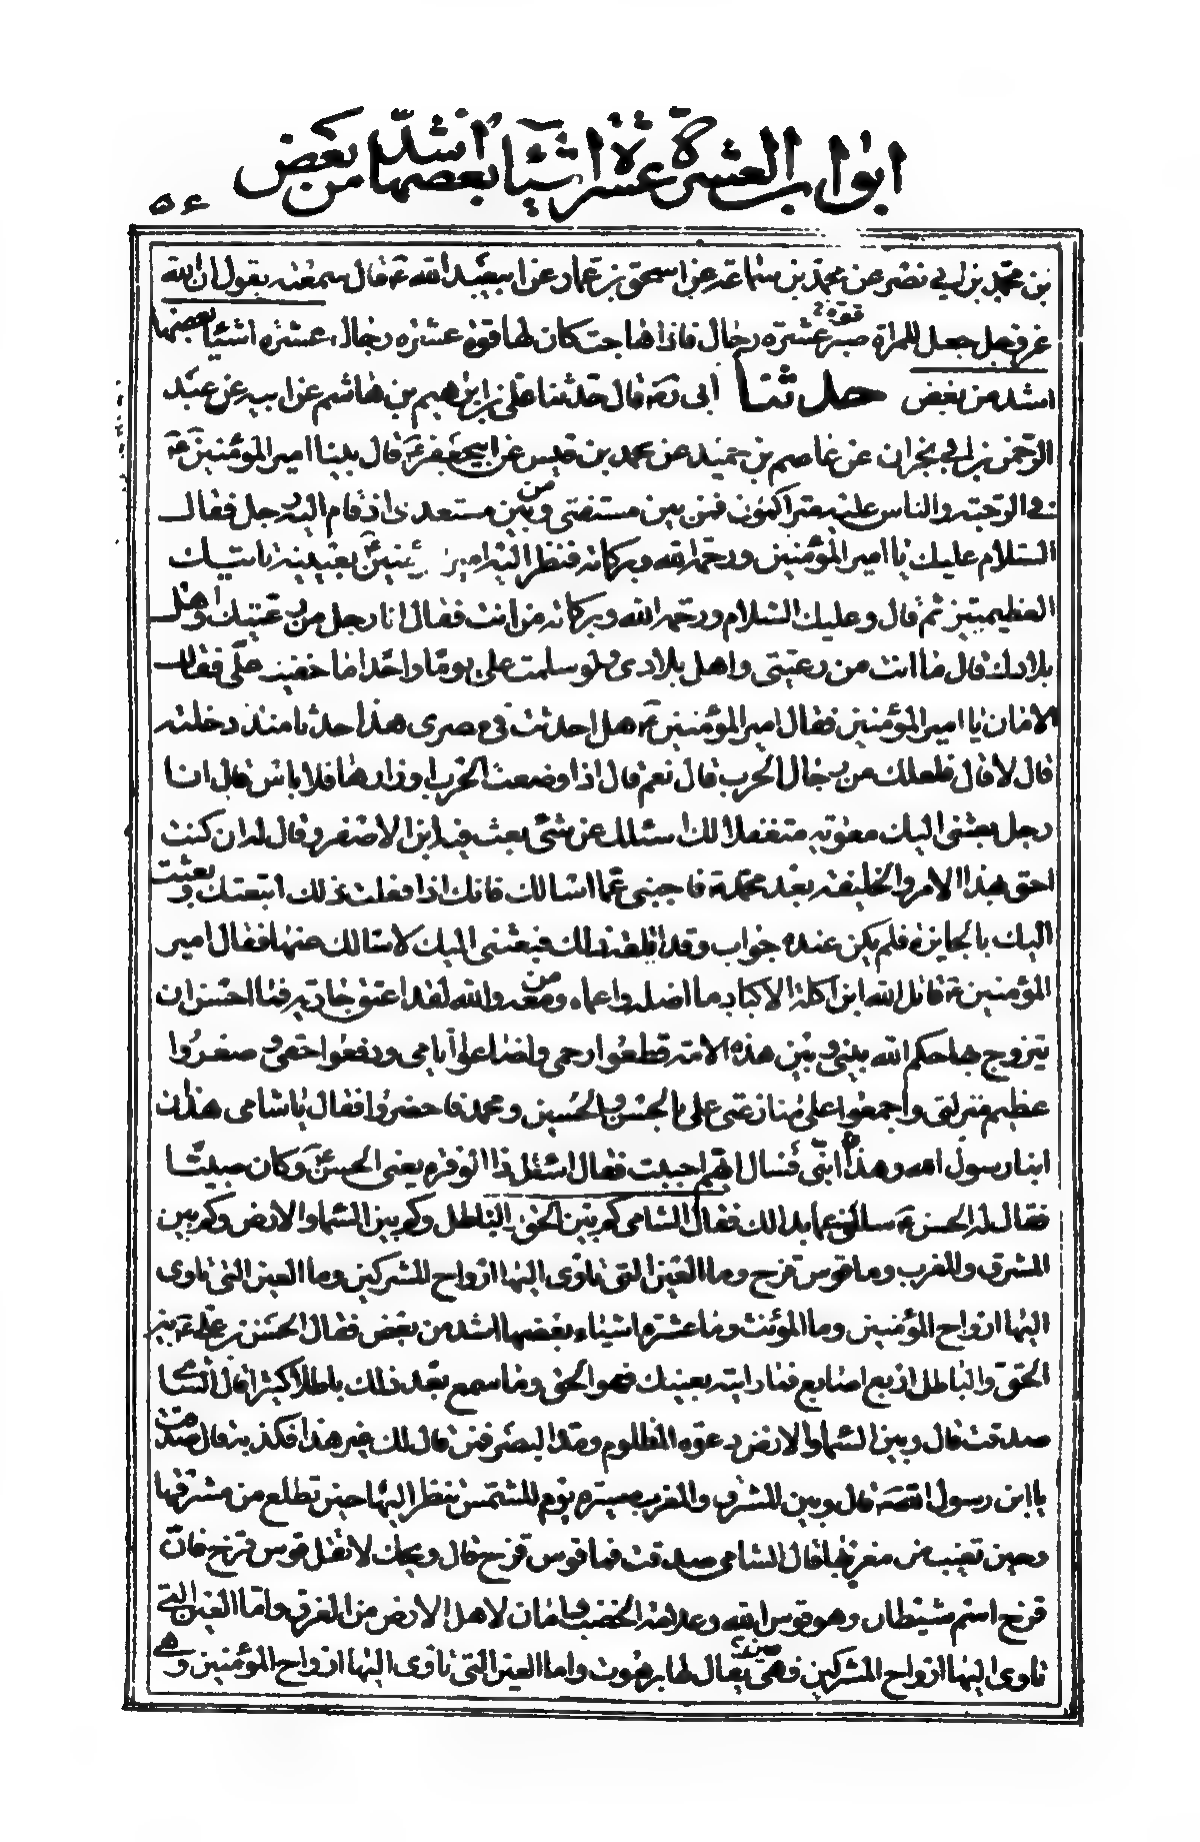 ابواب العشرة عشرة اشيا بعضها اشد من بعض
٥٤
بن محمد بن ابي نصر عن محمد بن سماعة عن اسحق بن عمار عن ابيعبد الله ع قال سمعته يقول ان الله
عز و جل جعل للمراة صبر عشرة رجال فاذا هاجت كان لها قوة عشرة رجال، عشرة اشيا بعضها
قوة
اشد من بعض حدثنا ابي ره قال حدثنا علي بن ابرهيم بن هاشم عن ابيه عن عبد
الرحمن بن ابي نجران عن عاصم بن حميد عن محمد بن قيس عن ابيجعفر ع قال بينا امير المؤمنين ع
في الرحبة والناس عليه متراكمون فمن بين مستفتي ومن بين مستعدي اذ قام اليه رجل فقال
السلام عليك يا امير المؤمنين ورحمة الله وبركاته فنظر اليه امير بعينيه هاتيك
العظيمتين ثم قال وعليك السلام ورحمة الله وبركاته من انت فقال انا رجل من رعيتك واهل
بلادك قال ما انت من رعيتي واهل بلادي ولو سلمت علي يوما واحدا ما خفيت علي فقال
الامان يا امير المؤمنين فقال امير المؤمنين ع هل احدثت في مصري هذا حدثا منذ دخلته
قال لا قال فلعلك من رجال الحرب قال نعم قال اذا وضعت الحرب اوزارها فلا باس قال انا
رجل بعثني اليك معوية متغفلا لك اسئلك عن شئ بعث فيه ابن الاصفر وقال له ان كنت
احق بهذا الامر والخليفة بعد محمد ص فاجبني عما اسالك فانك اذا فعلت ذلك اتبعتك وبعثت
اليك بالجايزة فلم يكن عنده جواب وقد اقلقه ذلك فبعثني اليك لاسالك عنها فقال امير
المؤمنين ع قاتل الله ابن اكلة الاكباد ما اضله واعماه ومن معه والله لقد اعتق جارية فما احسن ان
يتزوج بها حكم الله بيني وبين هذه الامة قطعوا رحمي واضاعوا ايامي ودفعوا حقي وصغروا
عظيم منزلتي واجمعوا على منازعتي علي بالحسن والحسين ومحمد فاحضروا فقال يا شامي هذان
ابنا رسول الله وهذا ابني فسال ايهم احببت فقال اسئل ذا الوفرة يعني الحسن ع وكان صبيا
فقال له الحسن ع سلني عما بدا لك فقال الشامي كم بين الحق والباطل وكم بين السما والارض وكم بين
المشرق والمغرب وما قوس قزح وما العين التي تاوى اليها ازواح المشركين وما العين التي تاوى
اليها ازواح المؤمنين وما المؤنث وما عشرة اشياء بعضها اشد من بعض فقال الحسن بن علي ع بين
الحق والباطل اربع اصابع فما رايته بعينك فهو الحق وما سمع بعد ذلك باطلا كثيرا قال الشامي
صدقت قال وبين السما والارض دعوة المظلوم ومد البصر فمن قال لك غير هذا فكذبه قال صدقت
يا ابن رسول الله ص قال وبين المشرق والمغرب مسيرة يوم للشمس تنظر اليها حين تطلع من مشرقها
وحين تغيب من مغربها قال الشامي صدقت فما قوس قزح قال ويحك لا تقل قوس قزح فان
قزح اسم شيطان وهو قوس الله وعلامة الخصب وامان لاهل الارض من الغرق واما العين التي
تاوى اليها ازواح المشركين فهي عين يقال لها برهوت واما العين التي تاوى اليها ازواح المؤمنين وهي